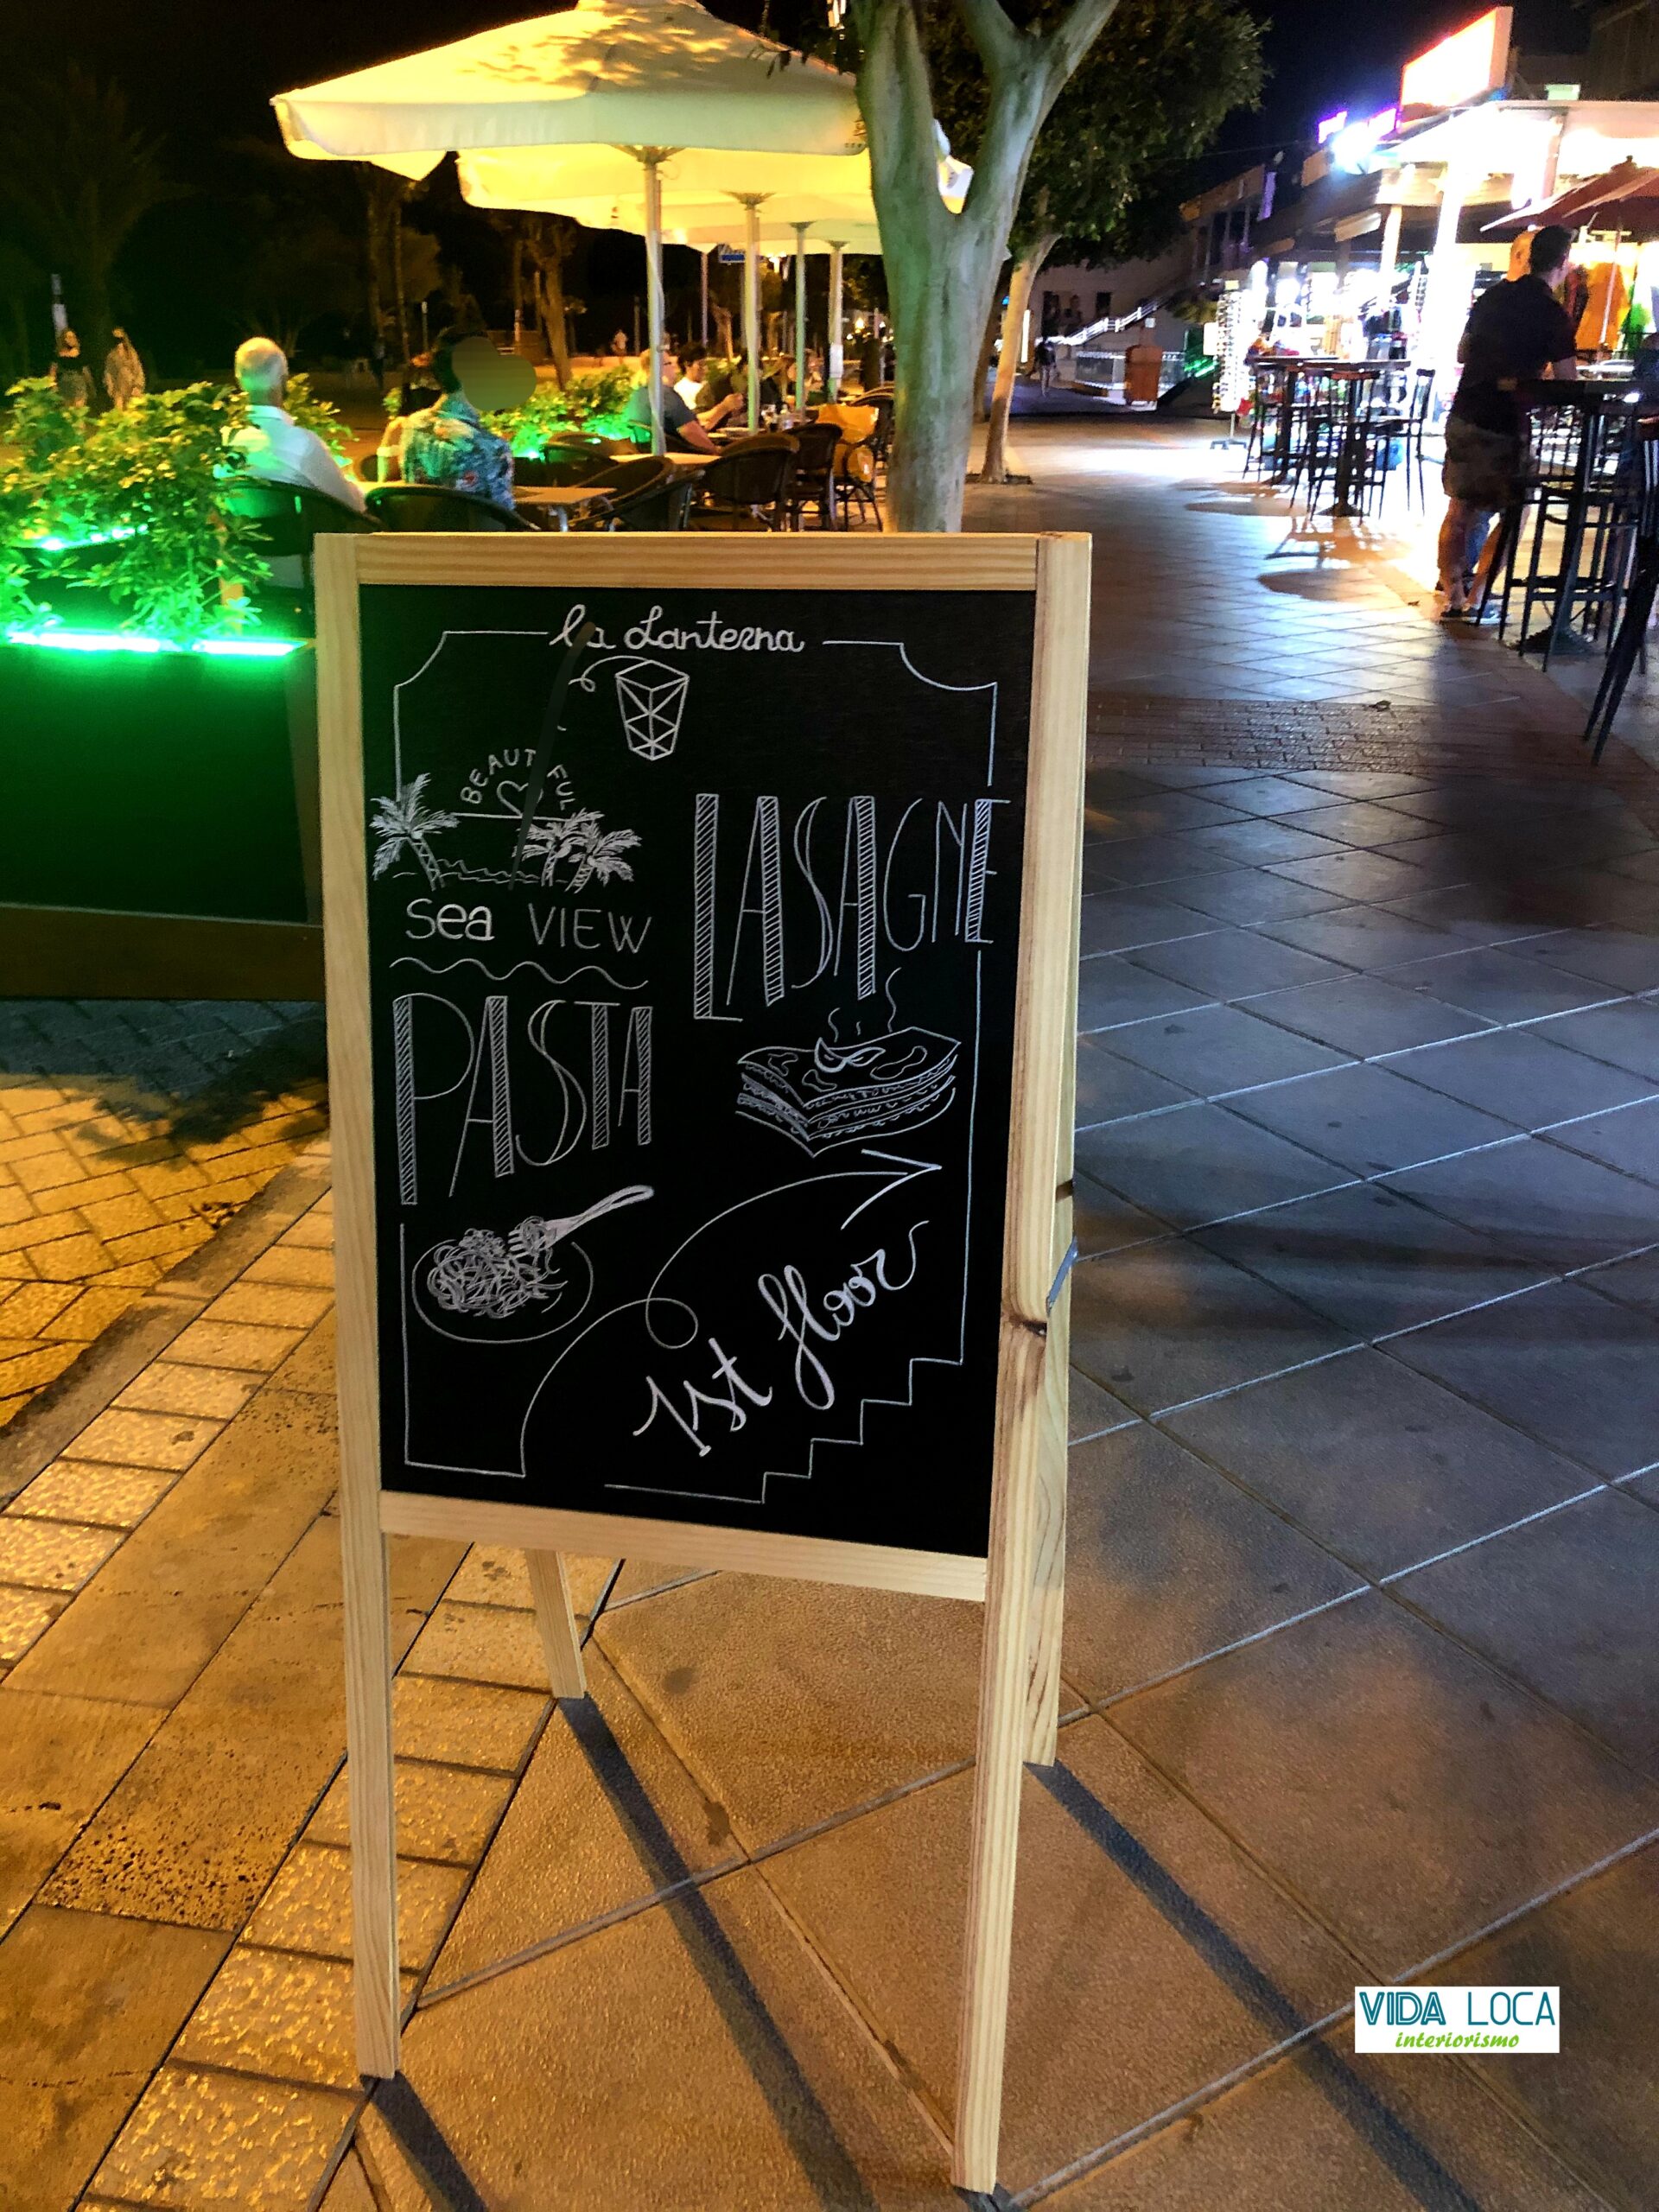 la Lanterna
BEAUTIFUL
Sea VIEW
LASAGNE
PASTA
1st floor
VIDA LOCA
interiorismo